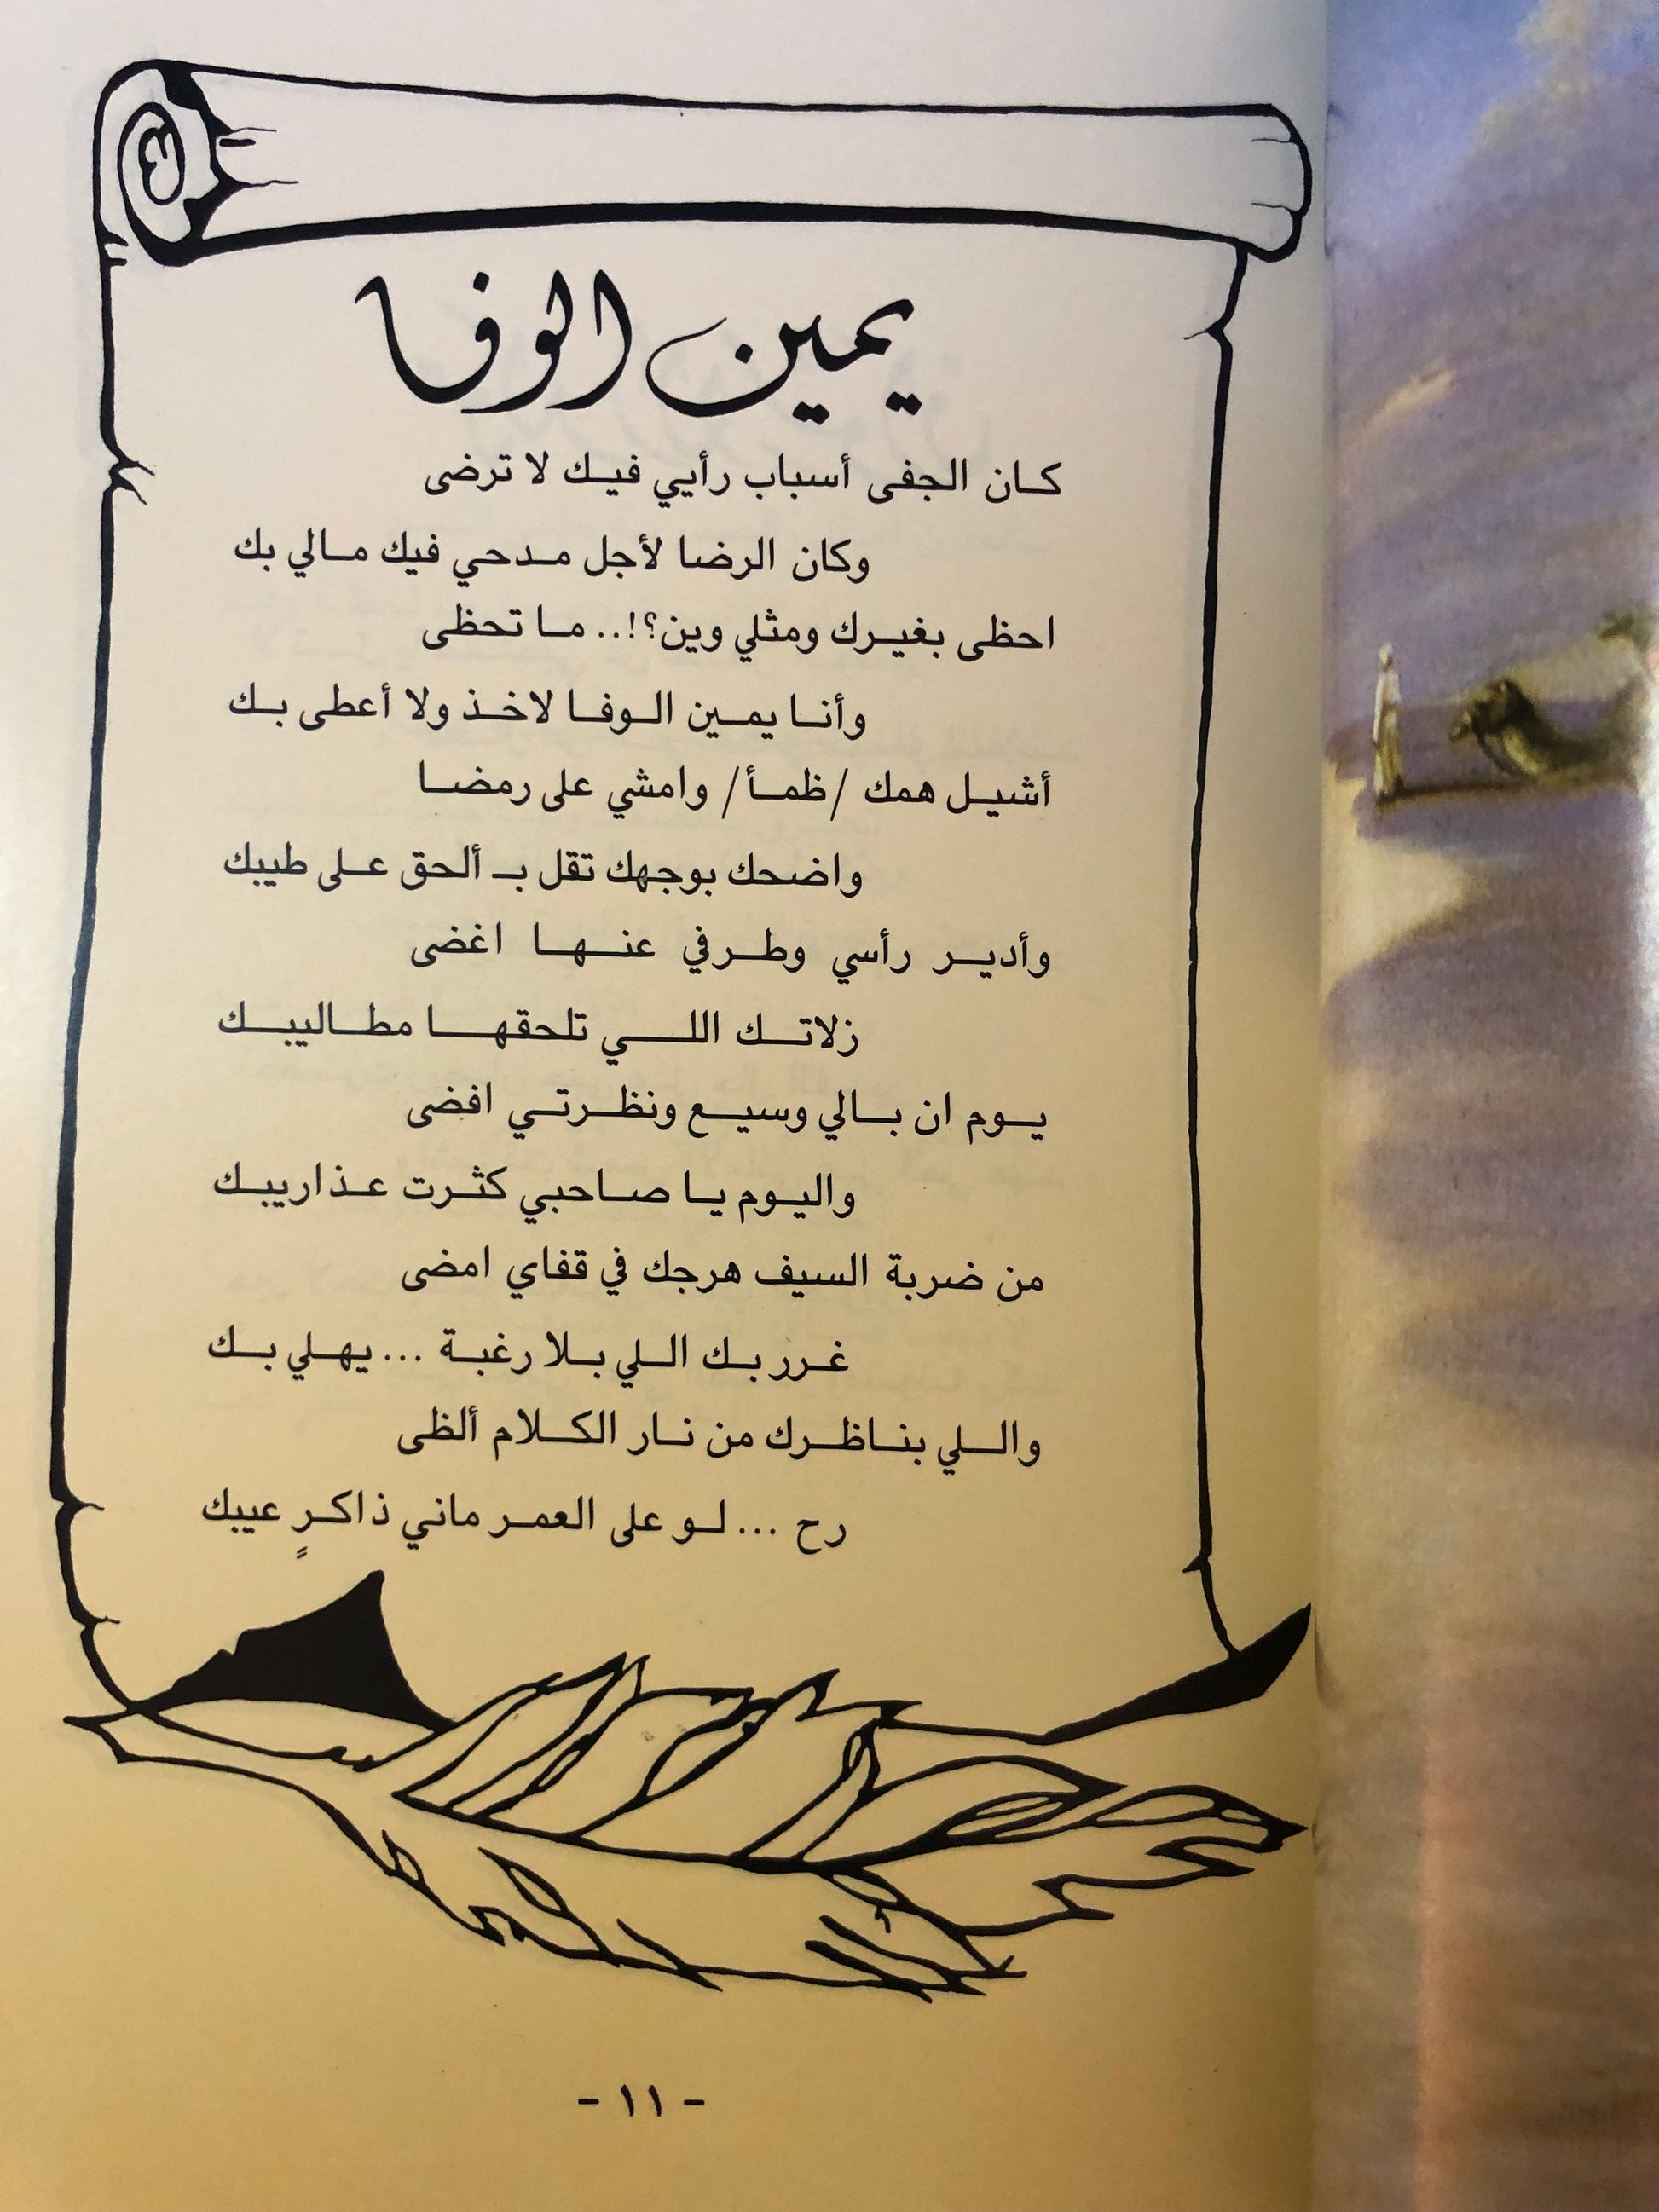 يمين الوفا
كان الجفى أسباب رأيي فيك لا ترضى
وكان الرضا لأجل مدحي فيك مالي بك
احظى بغيرك ومثلي وين؟!.. ما تحظى
وأنا يمين الوفا لاخذ ولا أعطى بك
أشيل همك /ظمأ/ وامشي على رمضا
واضحك بوجهك تقل بـ ألحق على طيبك
وأدير رأسي وطرفي عنها اغضى
زلاتك اللي تلحقها مطاليبك
يوم ان بالي وسيع ونظرتي افضى
واليوم يا صاحبي كثرت عذاريبك
من ضربة السيف هرجك في قفاي امضى
غرر بك اللي بلا رغبة ... يهلي بك
واللي بناظرك من نار الكلام ألظى
رح ... لو على العمر ماني ذاكرٍ عيبك
- ١١ -